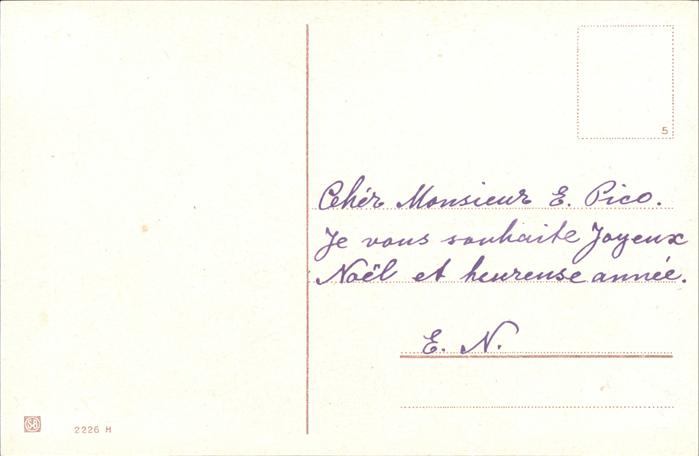 5
Chér Monsieur E. Pico.
Je vous souhaite Joyeux
Noël et heureuse année.
E. N.
2226 H